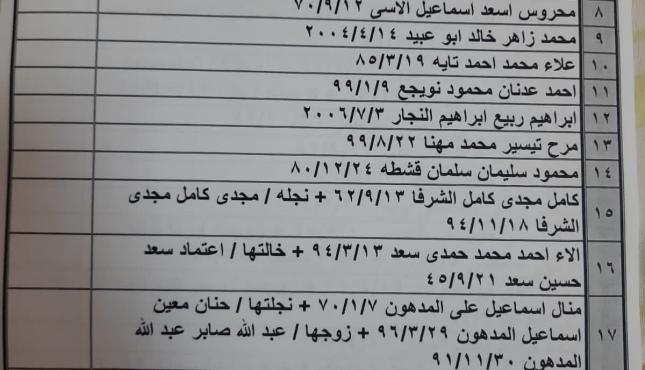 ٨ محروس اسعد اسماعيل الاسى ٧٠/٩/١٢
٩ محمد زاهر خالد ابو عبيد ٢٠٠٤/٤/١٤
١٠ علاء محمد احمد تايه ٨٥/٣/١٩
١١ احمد عدنان محمود نويجع ٩٩/١/٩
١٢ ابراهيم ربيع ابراهيم النجار ٢٠٠٦/٧/٣
١٣ مرح تيسير محمد مهنا ٩٩/٨/٢٢
١٤ محمود سليمان سلمان قشطه ٨٠/١٢/٢٤
١٥ كامل مجدى كامل الشرفا ٦٢/٩/١٣ + نجله / مجدى كامل مجدى
الشرفا ٩٤/١١/١٨
١٦ الاء احمد محمد حمدى سعد ٩٤/٣/١٣ + خالتها / اعتماد سعد
حسين سعد ٤٥/٩/٢١
١٧ منال اسماعيل على المدهون ٧٠/١/٧ + نجلتها / حنان معين
اسماعيل المدهون ٩٦/٣/٢٩ + زوجها / عبد الله صابر عبد الله
المدهون ٩١/١١/٣٠